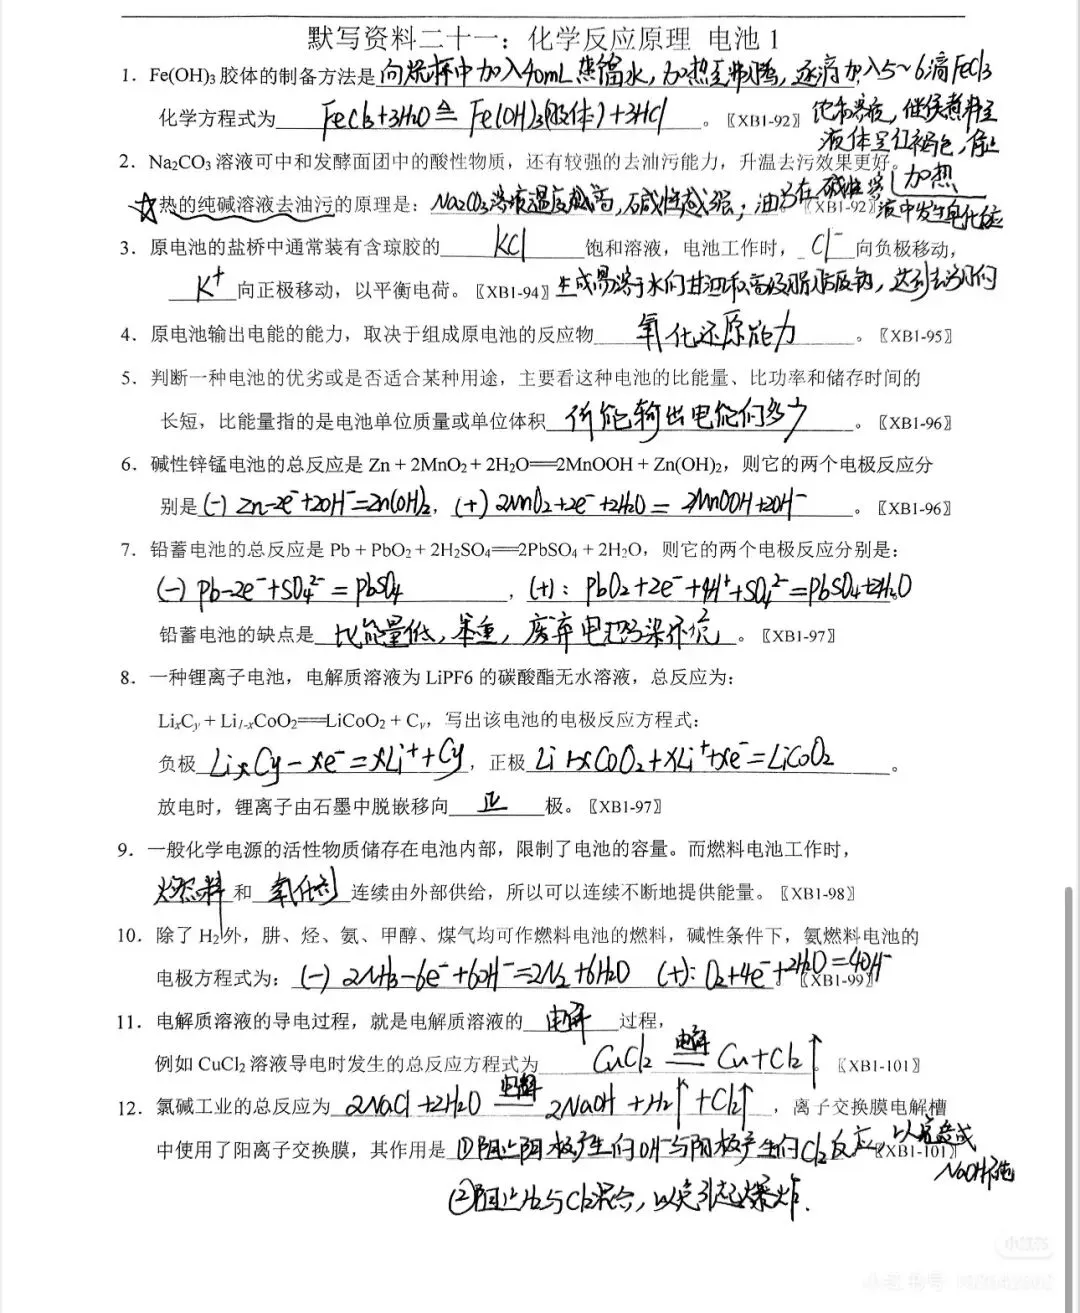 默写资料二十一：化学反应原理 电池1
1. Fe(OH)₃胶体的制备方法是向烧杯中加入40mL蒸馏水，加热至沸腾，逐滴加入5~6滴FeCl₃
化学方程式为 FeCl₃+3H₂O ≜ Fe(OH)₃(胶体)+3HCl 。〖XB1-92〗 饱和溶液，继续煮沸至
液体呈红褐色，停止
2. Na₂CO₃溶液可中和发酵面团中的酸性物质，还有较强的去油污能力，升温去污效果更好。
加热
☆热的纯碱溶液去油污的原理是：Na₂CO₃溶液温度越高，碱性越强；油污在碱性溶液中发生皂化反应 〖XB1-92〗
3. 原电池的盐桥中通常装有含琼胶的 KCl 饱和溶液，电池工作时，Cl⁻ 向负极移动，
K⁺ 向正极移动，以平衡电荷。〖XB1-94〗 生成易溶于水的甘油和高级脂肪酸钠，达到去油的
4. 原电池输出电能的能力，取决于组成原电池的反应物 氧化还原能力 。〖XB1-95〗
5. 判断一种电池的优劣或是否适合某种用途，主要看这种电池的比能量、比功率和储存时间的
长短，比能量指的是电池单位质量或单位体积 所能输出电能的多少 。〖XB1-96〗
6. 碱性锌锰电池的总反应是 Zn + 2MnO₂ + 2H₂O══2MnOOH + Zn(OH)₂，则它的两个电极反应分
别是 (-) Zn-2e⁻+2OH⁻=Zn(OH)₂，(+) 2MnO₂+2e⁻+2H₂O = 2MnOOH+2OH⁻ 。〖XB1-96〗
7. 铅蓄电池的总反应是 Pb + PbO₂ + 2H₂SO₄══2PbSO₄ + 2H₂O，则它的两个电极反应分别是：
(-) Pb-2e⁻+SO₄²⁻=PbSO₄ ，(+): PbO₂+2e⁻+4H⁺+SO₄²⁻=PbSO₄+2H₂O
铅蓄电池的缺点是 比能量低，笨重，废弃电池污染环境 。〖XB1-97〗
8. 一种锂离子电池，电解质溶液为 LiPF6 的碳酸酯无水溶液，总反应为：
LixCy + Li1-xCoO₂══LiCoO₂ + Cy，写出该电池的电极反应方程式：
负极 LixCy-xe⁻=xLi⁺+Cy ，正极 Li1-xCoO₂+xLi⁺+xe⁻=LiCoO₂ 。
放电时，锂离子由石墨中脱嵌移向 正 极。〖XB1-97〗
9. 一般化学电源的活性物质储存在电池内部，限制了电池的容量。而燃料电池工作时，
燃料 和 氧化剂 连续由外部供给，所以可以连续不断地提供能量。〖XB1-98〗
10. 除了 H₂外，肼、烃、氨、甲醇、煤气均可作燃料电池的燃料，碱性条件下，氨燃料电池的
电极方程式为：(-) 2NH₃-6e⁻+6OH⁻=2N₂+6H₂O (+): O₂+4e⁻+2H₂O=4OH⁻ 〖XB1-99〗
11. 电解质溶液的导电过程，就是电解质溶液的 电解 过程，
例如 CuCl₂ 溶液导电时发生的总反应方程式为 CuCl₂ 电解══ Cu+Cl₂↑ 。〖XB1-101〗
12. 氯碱工业的总反应为 2NaCl+2H₂O 电解══ 2NaOH+H₂↑+Cl₂↑ ，离子交换膜电解槽
中使用了阳离子交换膜，其作用是 ①阻止阴极产生的OH⁻与阳极产生的Cl₂反应，以免造成 〖XB1-101〗
NaOH不纯
②阻止H₂与Cl₂混合，以免引起爆炸.
小红书